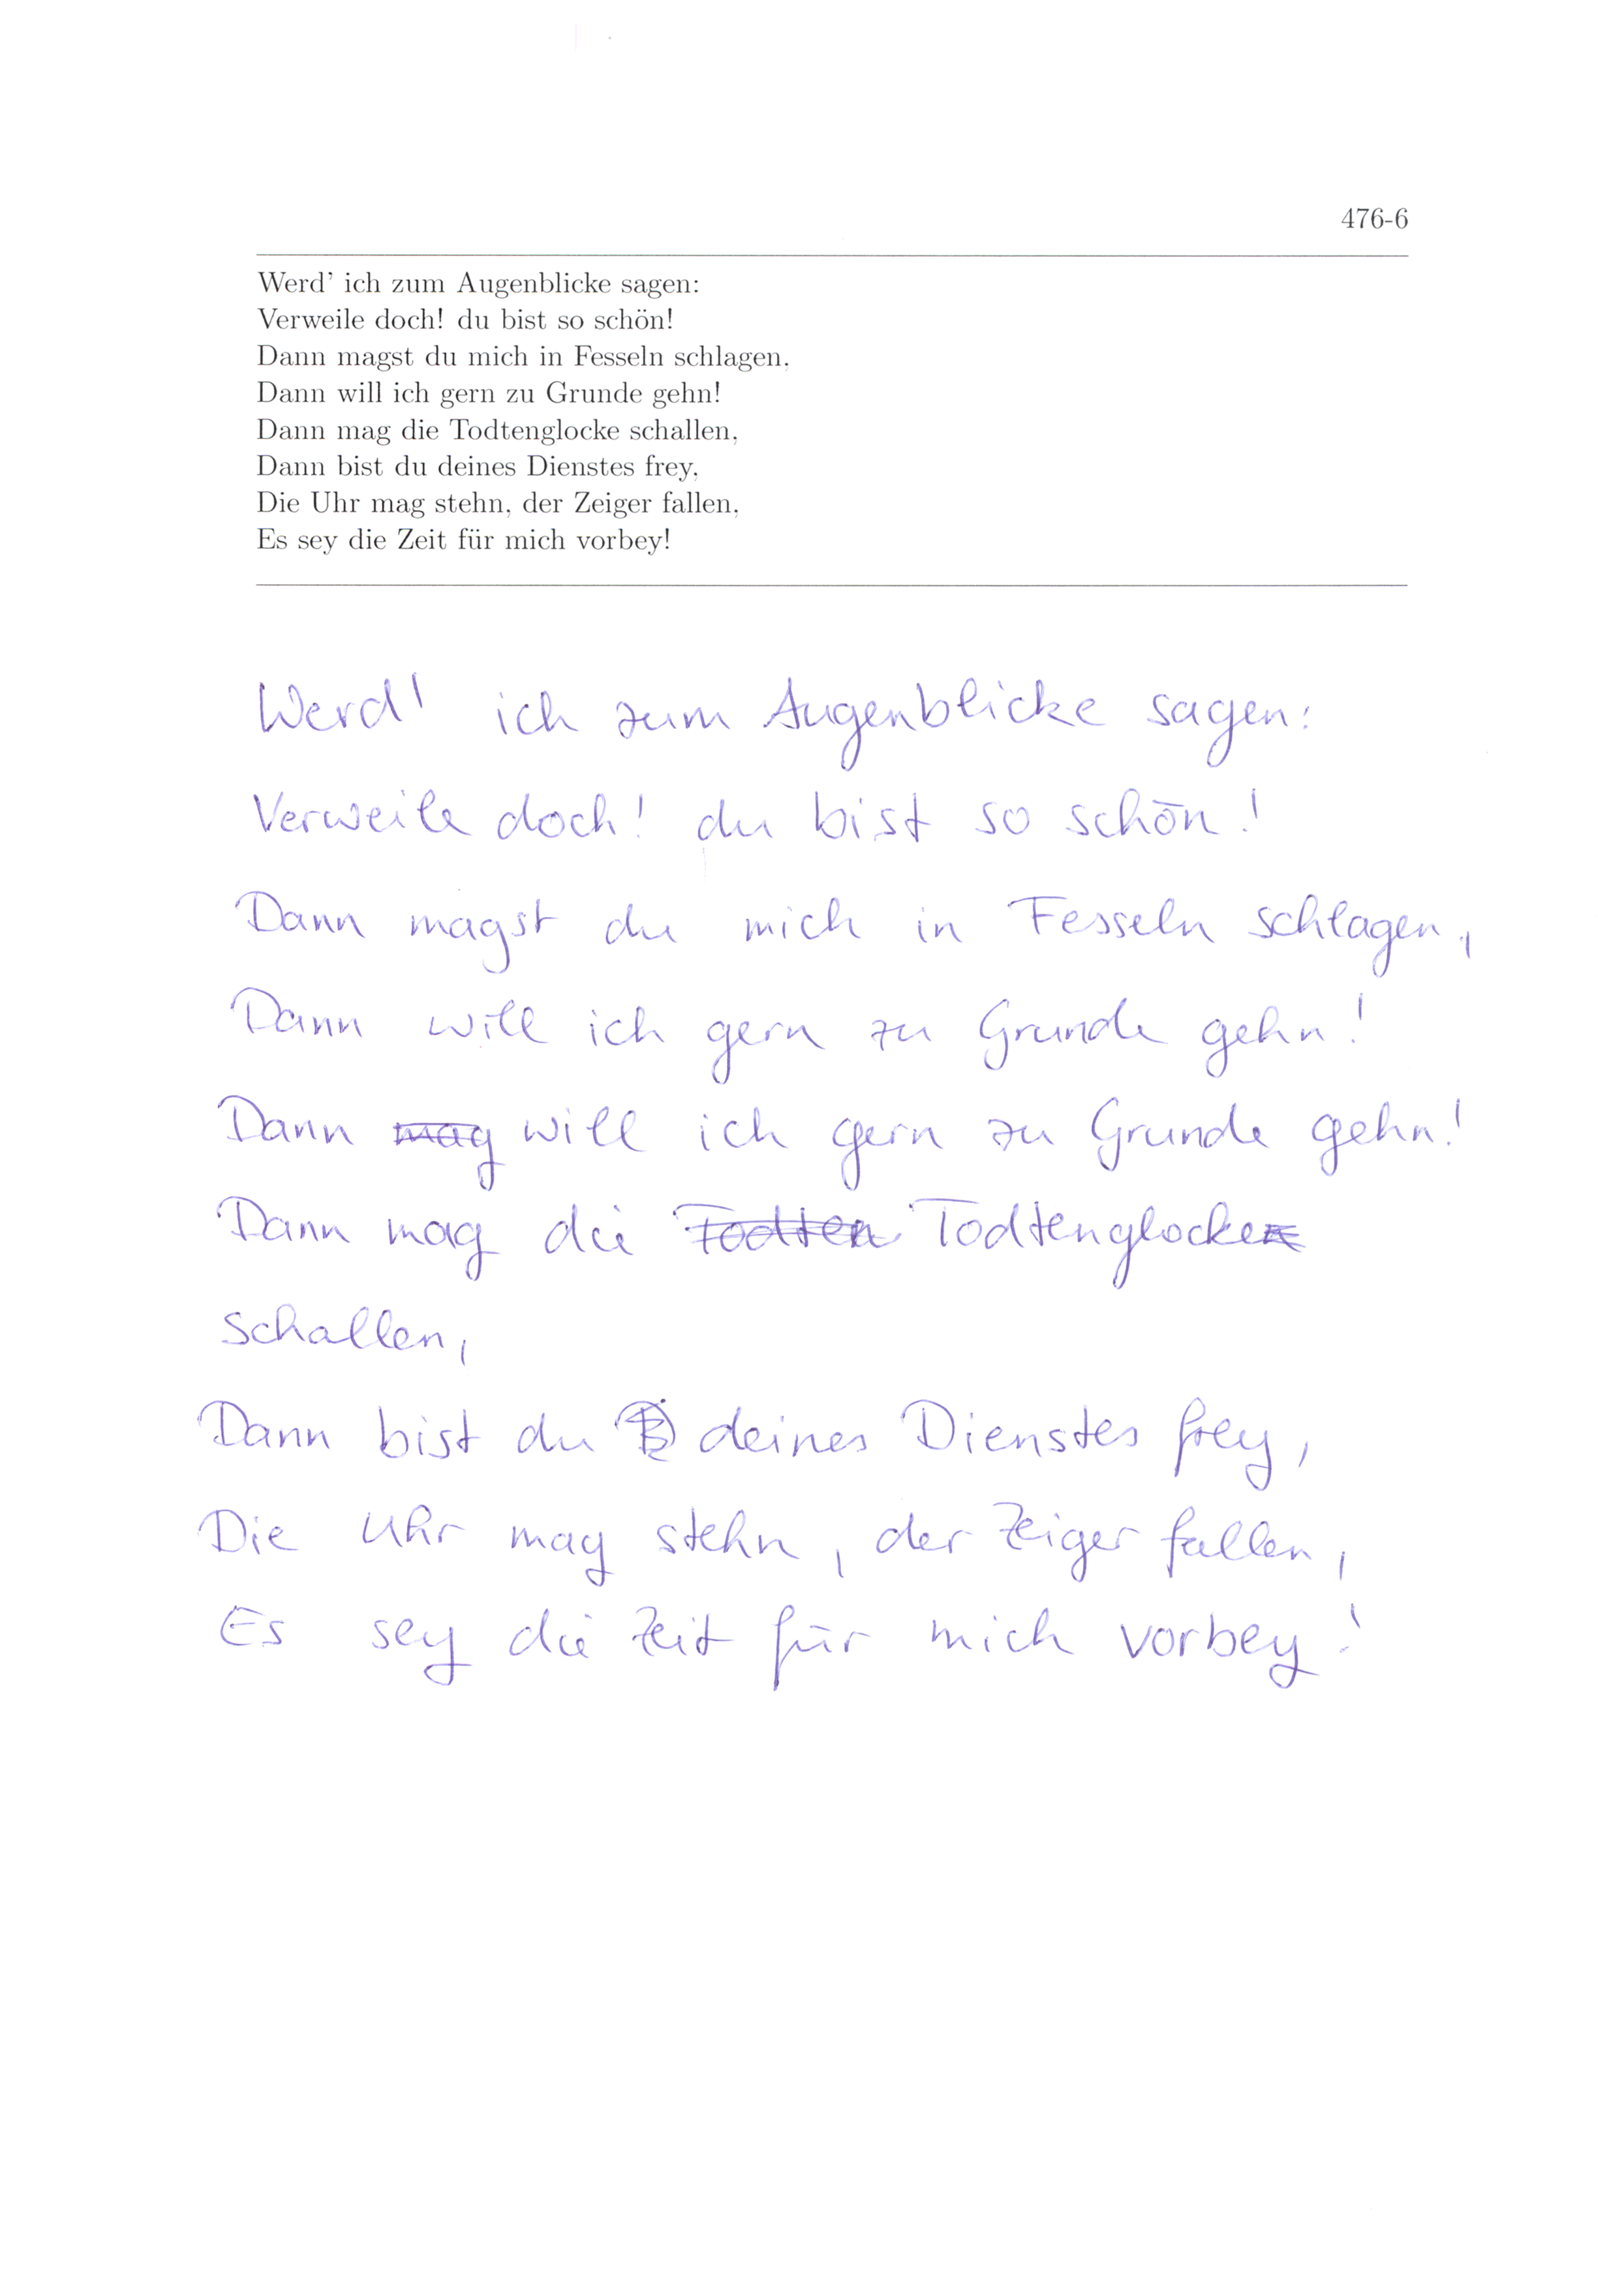 476-6
Werd' ich zum Augenblicke sagen:
Verweile doch! du bist so schön!
Dann magst du mich in Fesseln schlagen,
Dann will ich gern zu Grunde gehn!
Dann mag die Todtenglocke schallen,
Dann bist du deines Dienstes frey,
Die Uhr mag stehn, der Zeiger fallen,
Es sey die Zeit für mich vorbey!
Werd' ich zum Augenblicke sagen:
Verweile doch! du bist so schön!
Dann magst du mich in Fesseln schlagen,
Dann will ich gern zu Grunde gehn!
Dann mag will ich gern zu Grunde gehn!
Dann mag die Todten Todtenglocke
schallen,
Dann bist du deines Dienstes frey,
Die Uhr mag stehn, der Zeiger fallen,
Es sey die Zeit für mich vorbey!